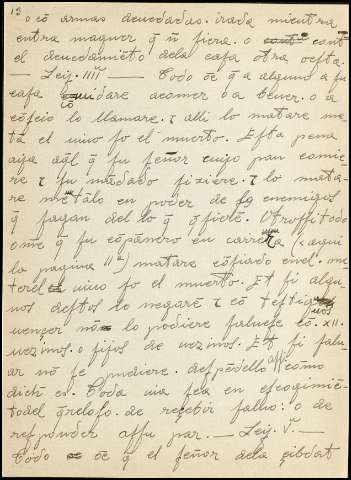 13
o cō armas deuedadas. irada mientra
entra maguer q̄ nō fiera. o cont
el deuedamiēto dela casa otra osta.
— Ley. IIIIª — Todo ōe q̄ a alguno a su
casa cōuidare acomer o a beuer. o a
cōseio lo llamare. ⁊ alli lo matare me
tā el uiuo so el muerto. Esta pena
aya aq̄l q̄ su señor cuyo pan comie
re ⁊ su mādado fiziere. ⁊ lo mata
re metālo en poder de sꝯ enemigos
q̄ fagan del lo q̄ q̄sierē. Otrossi todo
omē q̄ su cōpañero en carrera (aqui
la pagina 11ª) matare cōsiado enel. me
terle uiuo so el muerto. Et si algu
nos destos lo negarē ⁊ cō testigos
uençer nō lo podiere saluese cō. XII.
uezinos. o fijos de uezinos. Et si salu
ar nō se pudiere. despēdello assi cōmo
dicħ es. Toda uia sea en escogimiē
to del q̄reloso. de reçebir saluo: o de
respōnder assu par. — Ley. Vª —
Todo ōe q̄ el señor dela çibdat